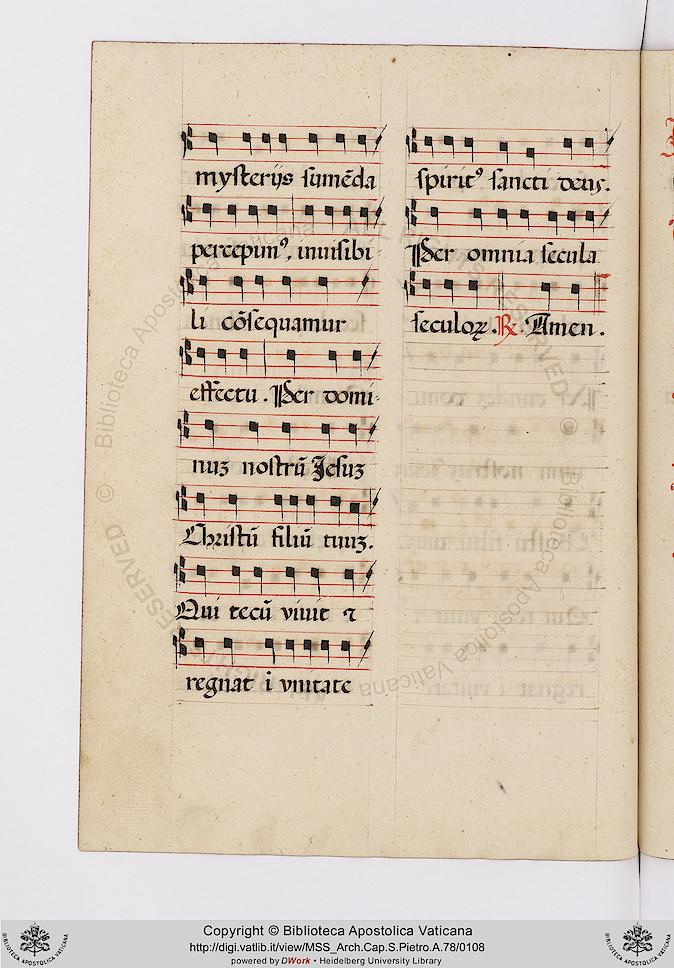 mysterijs sumẽda
percepimꝰ, inuisibi-
li cõsequamur
effectu. Per domi-
nuʒ nostrũ Jesuʒ
Christũ filiũ tuuʒ.
Qui tecũ viuit ⁊
regnat ĩ vnitate
spiritꝰ sancti deus.
Per omnia secula
seculoꝝ. ℟. Amen.
BIBLIOTECA APOSTOLICA VATICANA
Copyright © Biblioteca Apostolica Vaticana
http://digi.vatlib.it/view/MSS_Arch.Cap.S.Pietro.A.78/0108
powered by DWork • Heidelberg University Library
BIBLIOTECA APOSTOLICA VATICANA